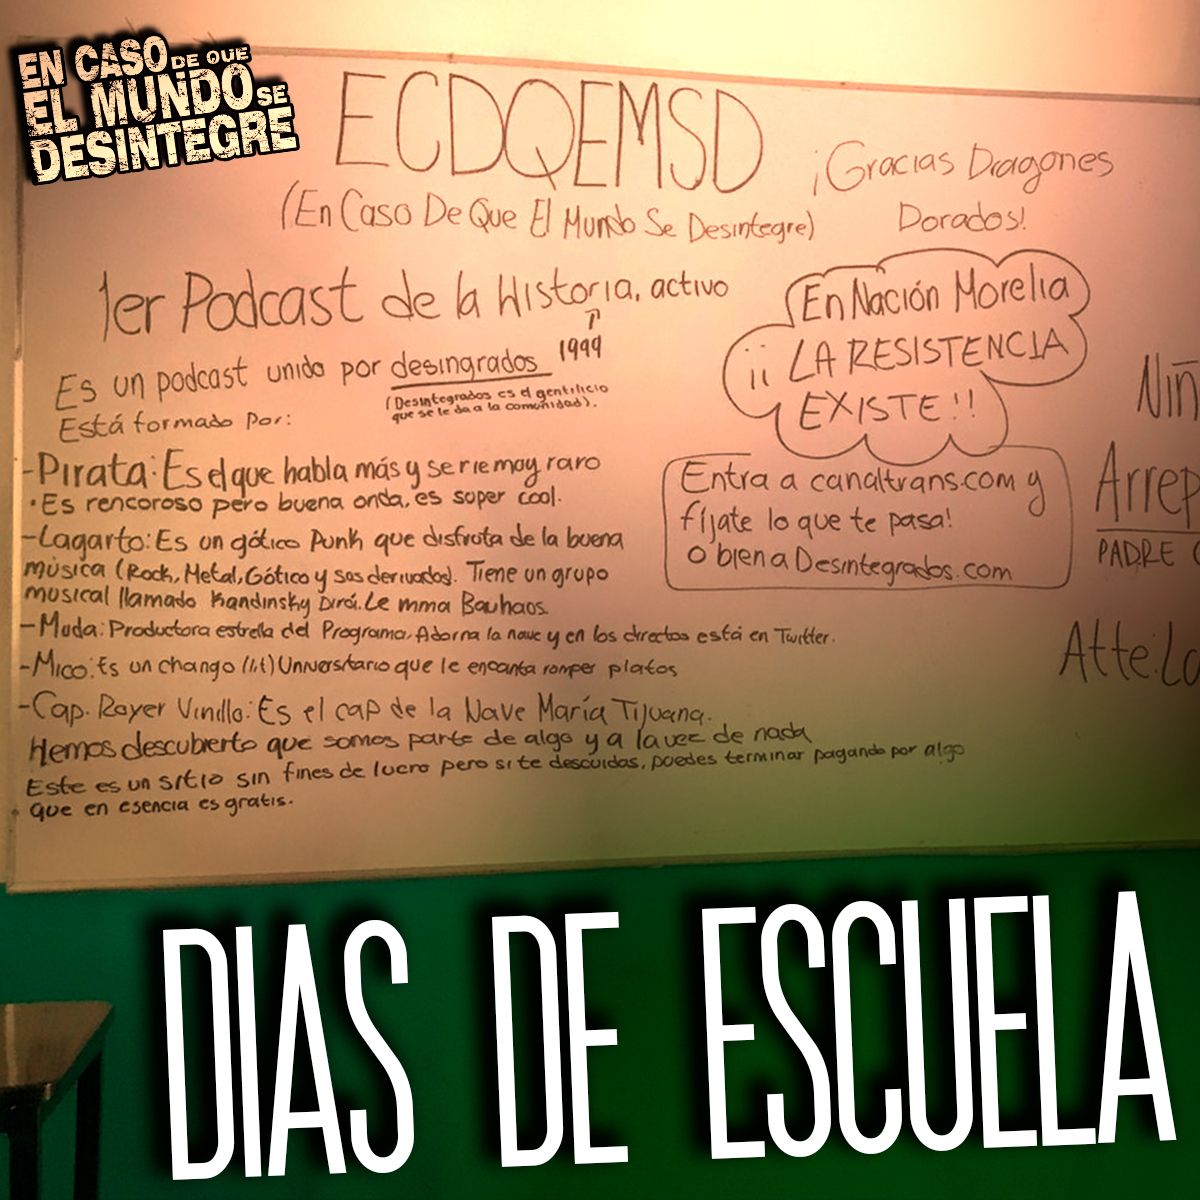 EN CASO DE QUE
EL MUNDO SE
DESINTEGRE
ECDQEMSD
(En Caso De Que El Mundo Se Desintegre)
¡Gracias Dragones
Dorados!
1er Podcast de la Historia, activo
1999
Es un podcast unido por desingrados
(Desintegrados es el gentilicio
que se le da a la comunidad).
Está formado por:
En Nación Morelia
¡¡LA RESISTENCIA
EXISTE!!
-Pirata: Es el que habla más y se rie moy raro
·Es rencoroso pero buena onda, es super cool.
-Lagarto: Es un gótico Punk que disfruta de la buena
música (Rock, Metal, Gótico y sus derivados). Tiene un grupo
musical llamado Kandinsky Dirá. Le mma Bauhaos.
-Muda: Productora estrella del Programa. Adorna la nave y en los directos está en Twitter.
-Mico: Es un chango (lit) Universitario que le encanta romper platos
-Cap. Royer Vinillo: Es el cap de la Nave María Tijuana.
Hemos descubierto que somos parte de algo y a la vez de nada
Este es un sitio sin fines de lucro pero si te descuidas, puedes terminar pagando por algo
que en esencia es gratis.
Entra a canaltrans.com y
fíjate lo que te pasa!
o bien a Desintegrados.com
Niñ
Arrep
PADRE
Atte: Lo
DIAS DE ESCUELA